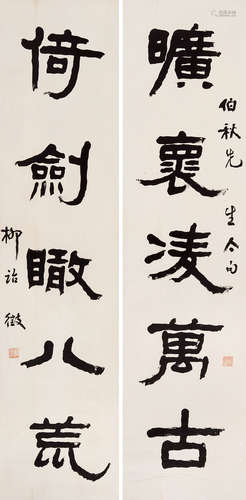 曠褱淩萬古
伯秋先生令句
倚劍瞰八荒
柳詒徵